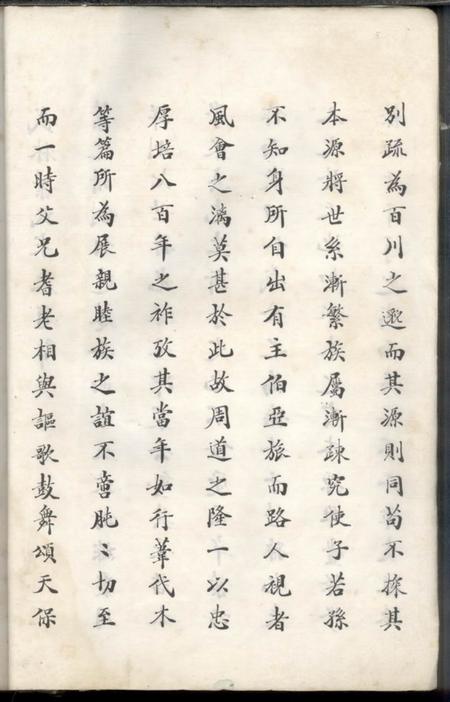 別疏為百川之遯而其源則同苟不探其
本源將世系漸繁族屬漸疎究使子若孫
不知身所自出有主伯亞旅而路人視者
風會之漓莫甚於此故周道之隆一以忠
厚培八百年之祚攷其當年如行葦伐木
等篇所為展親睦族之誼不啻肫〻切至
而一時父兄耆老相與謳歌鼓舞頌天保